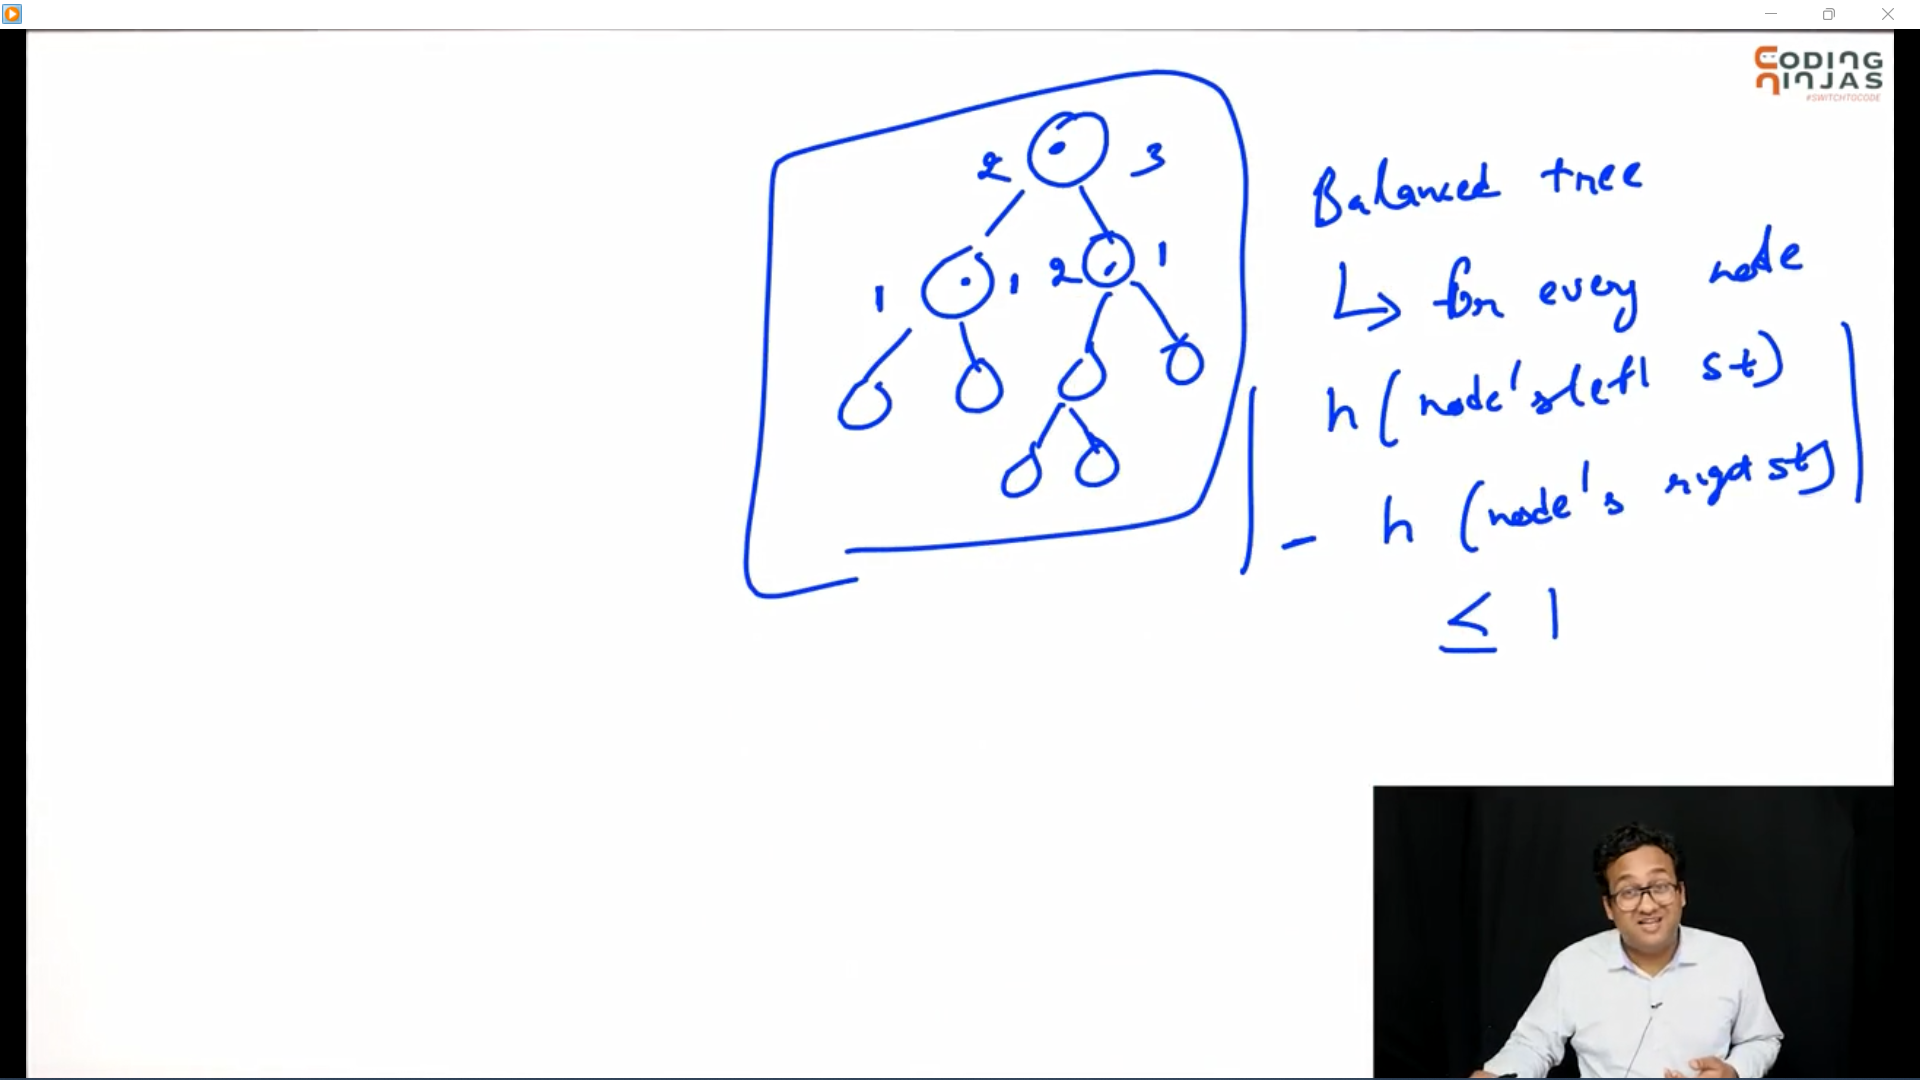 CODING
NINJAS
#SWITCHTOCODE
2 3
1 1 2 1
Balanced tree
↳ for every node
| h (node's left st)
- h (node's right st) |
≤ 1